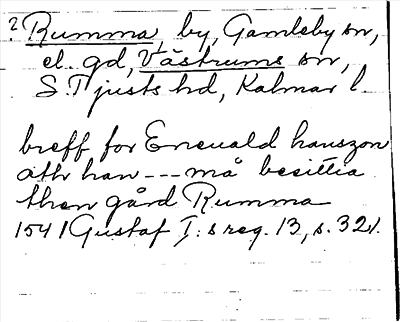 ? Rumma by, Gamleby sn,
el. gd, Västrums sn,
S. Tjusts hd, Kalmar l.
breff for Eneuald hanszon
ath han --- må besittia
then gård Rumma
1541 Gustaf I:s reg. 13, s. 321.